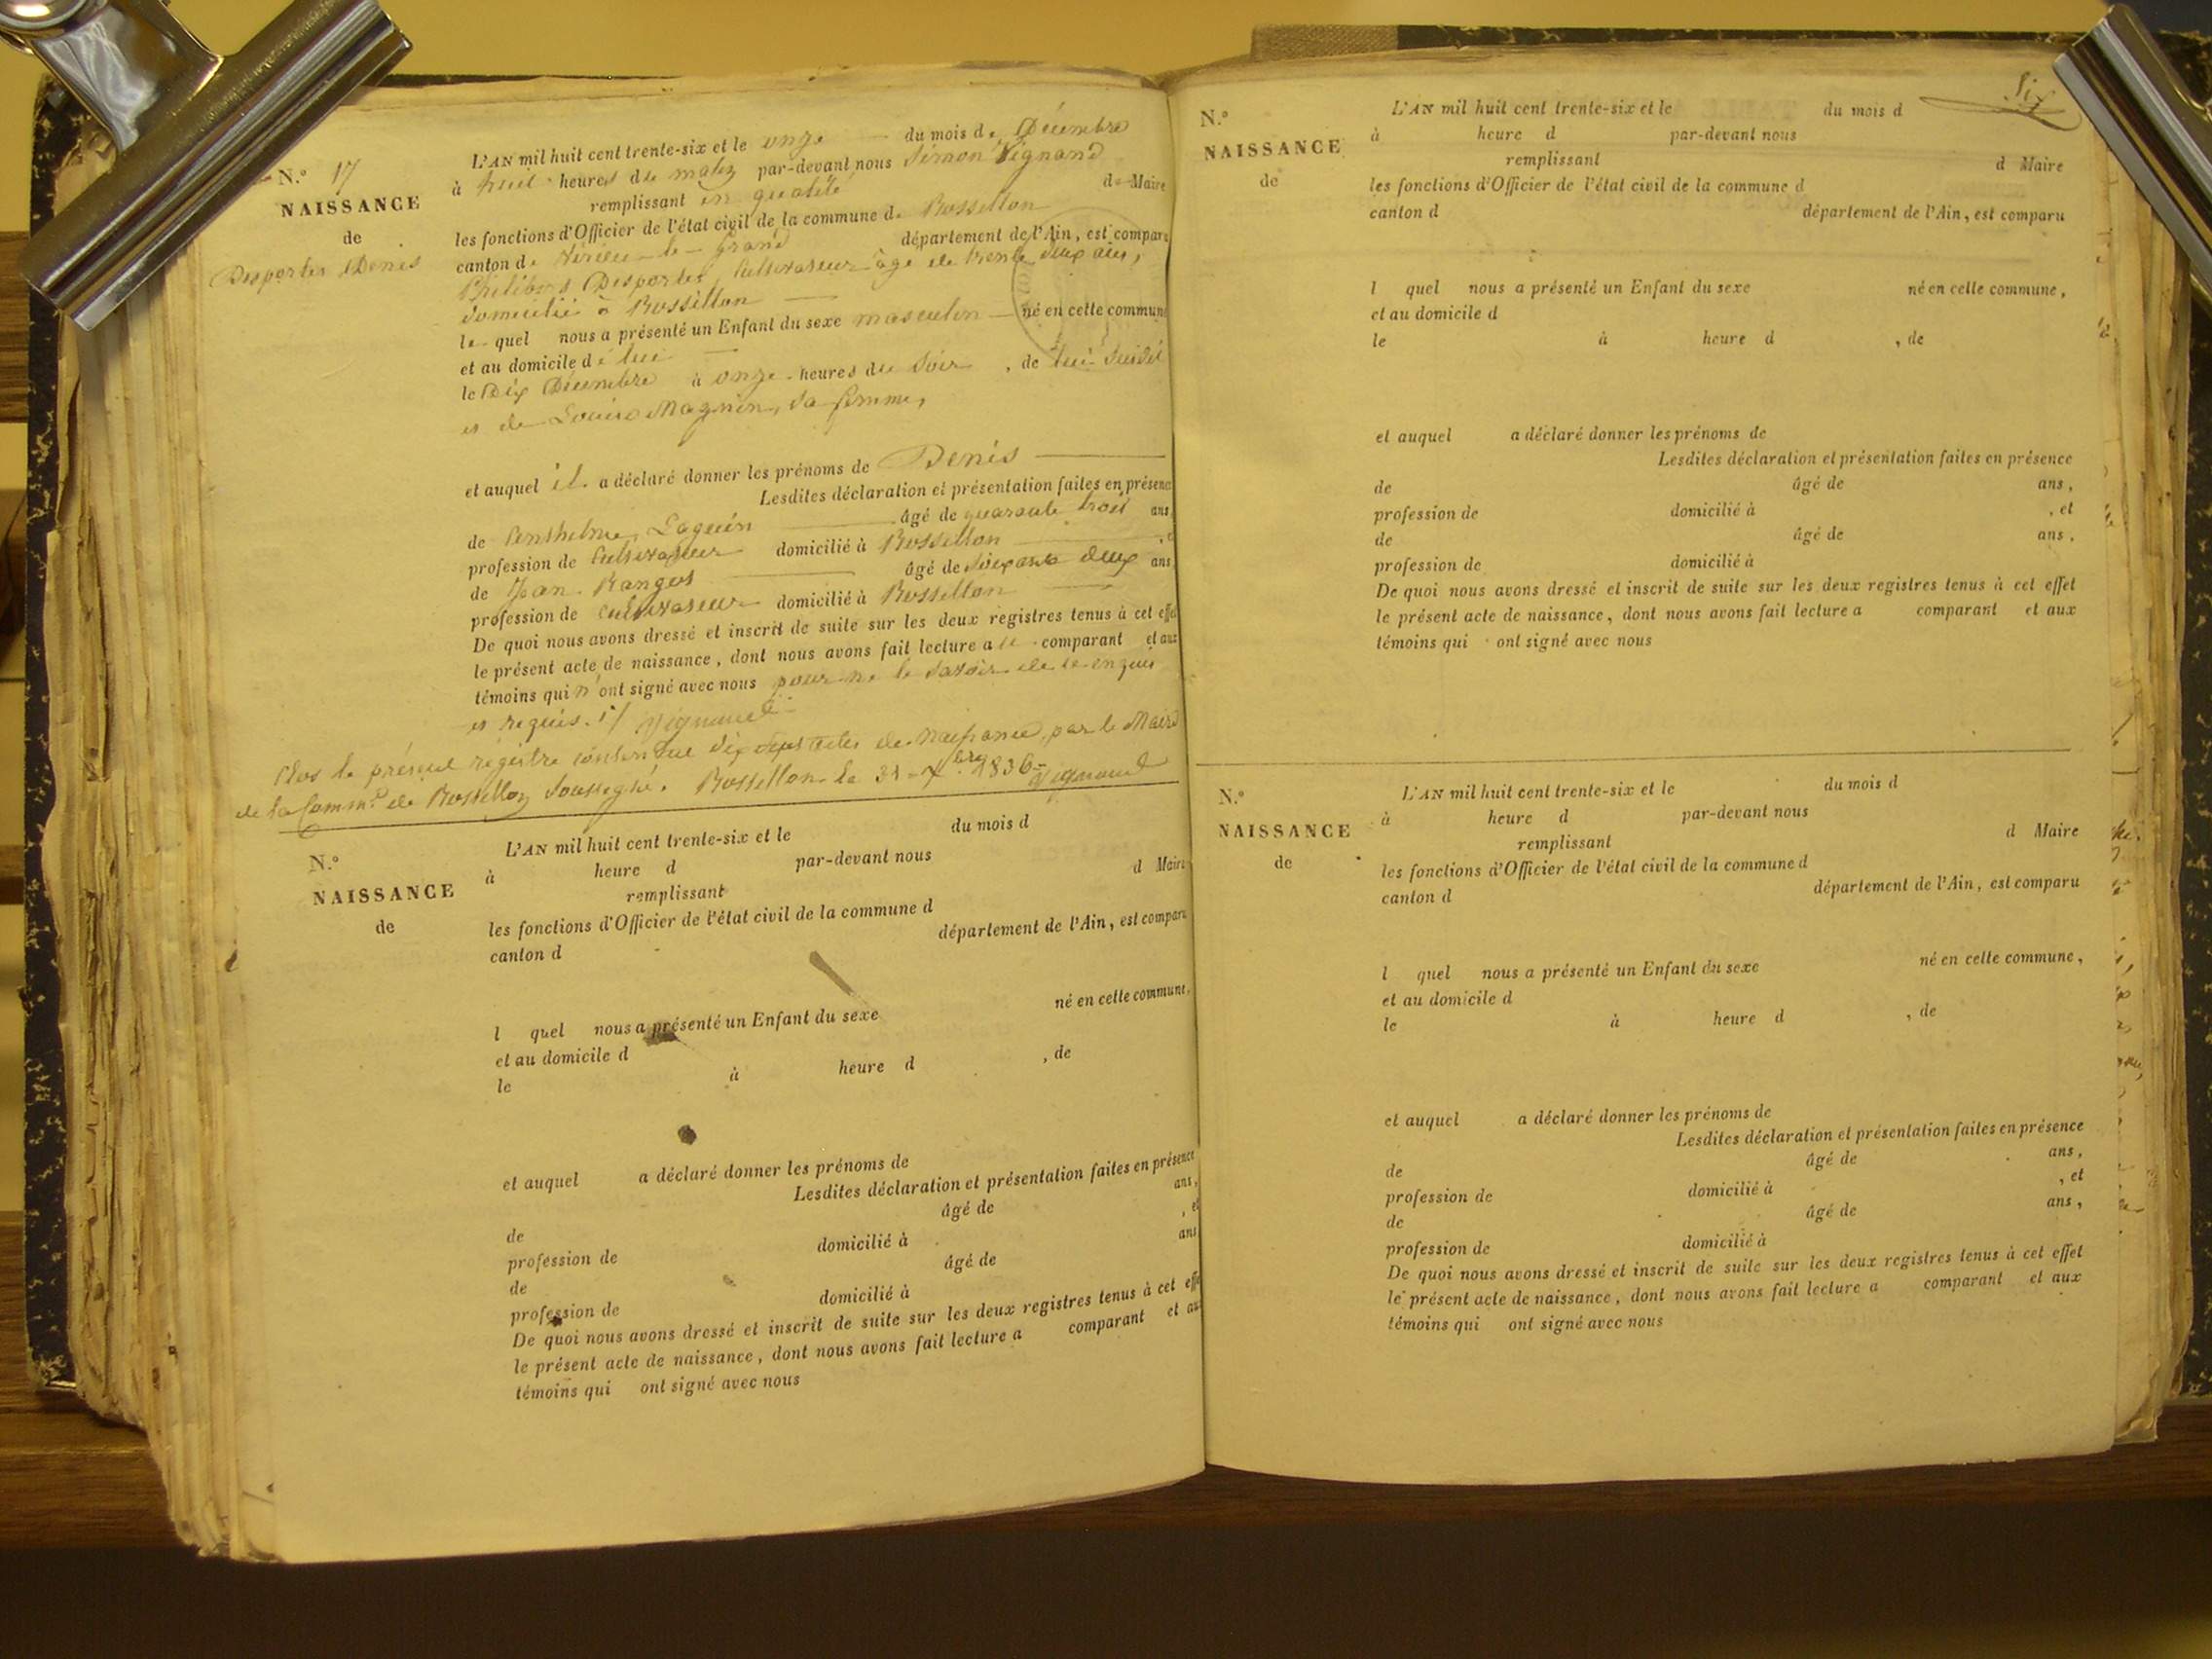 N.° 17
NAISSANCE
de
Desportes Denis
L'AN mil huit cent trente-six et le onze du mois de Décembre
à huit heures du matin par-devant nous Simon Vignand
remplissant en qualité de Maire
les fonctions d'Officier de l'état civil de la commune de Rossillon
canton de Virieu-le-Grand département de l'Ain, est comparu
Philibert Desportes, Cultivateur âgé de trente deux ans,
domicilié à Rossillon
lequel nous a présenté un Enfant du sexe masculin né en cette commune
et au domicile de lui
le Dix Décembre à onze heures du Soir, de lui Susdit
et de Louise Magnin, sa femme,
et auquel il a déclaré donner les prénoms de Denis
Lesdites déclaration et présentation faites en présence
de Anthelme Laguin âgé de quarante trois ans
profession de Cultivateur domicilié à Rossillon, et
de Jean Ranget âgé de Soixante deux ans
profession de cultivateur domicilié à Rossillon
De quoi nous avons dressé et inscrit de suite sur les deux registres tenus à cet effet
le présent acte de naissance, dont nous avons fait lecture au comparant et aux
témoins qui n'ont signé avec nous pour ne le savoir de ce enquis
et requis. Vignand
Clos le présent régistre contenant dix sept actes de Naissance, par le Maire
de la Comm.e de Rossillon Soussigné. Rossillon le 31 Xbre 1836 Vignand
N.°
NAISSANCE
de
L'AN mil huit cent trente-six et le du mois d
à heure d par-devant nous
remplissant d Maire
les fonctions d'Officier de l'état civil de la commune d
canton d département de l'Ain, est comparu
l quel nous a présenté un Enfant du sexe né en cette commune,
et au domicile d
le à heure d , de
et auquel a déclaré donner les prénoms de
Lesdites déclaration et présentation faites en présence
de âgé de ans,
profession de domicilié à , et
de âgé de ans
profession de domicilié à
De quoi nous avons dressé et inscrit de suite sur les deux registres tenus à cet effet
le présent acte de naissance, dont nous avons fait lecture a comparant et aux
témoins qui ont signé avec nous
Six
N.°
NAISSANCE
de
L'AN mil huit cent trente-six et le du mois d
à heure d par-devant nous
remplissant d Maire
les fonctions d'Officier de l'état civil de la commune d
canton d département de l'Ain, est comparu
l quel nous a présenté un Enfant du sexe né en cette commune,
et au domicile d
le à heure d , de
et auquel a déclaré donner les prénoms de
Lesdites déclaration et présentation faites en présence
de âgé de ans,
profession de domicilié à , et
de âgé de ans,
profession de domicilié à
De quoi nous avons dressé et inscrit de suite sur les deux registres tenus à cet effet
le présent acte de naissance, dont nous avons fait lecture a comparant et aux
témoins qui ont signé avec nous
N.°
NAISSANCE
de
L'AN mil huit cent trente-six et le du mois d
à heure d par-devant nous
remplissant d Maire
les fonctions d'Officier de l'état civil de la commune d
canton d département de l'Ain, est comparu
l quel nous a présenté un Enfant du sexe né en cette commune,
et au domicile d
le à heure d , de
et auquel a déclaré donner les prénoms de
Lesdites déclaration et présentation faites en présence
de âgé de ans,
profession de domicilié à , et
de âgé de ans,
profession de domicilié à
De quoi nous avons dressé et inscrit de suite sur les deux registres tenus à cet effet
le présent acte de naissance, dont nous avons fait lecture a comparant et aux
témoins qui ont signé avec nous